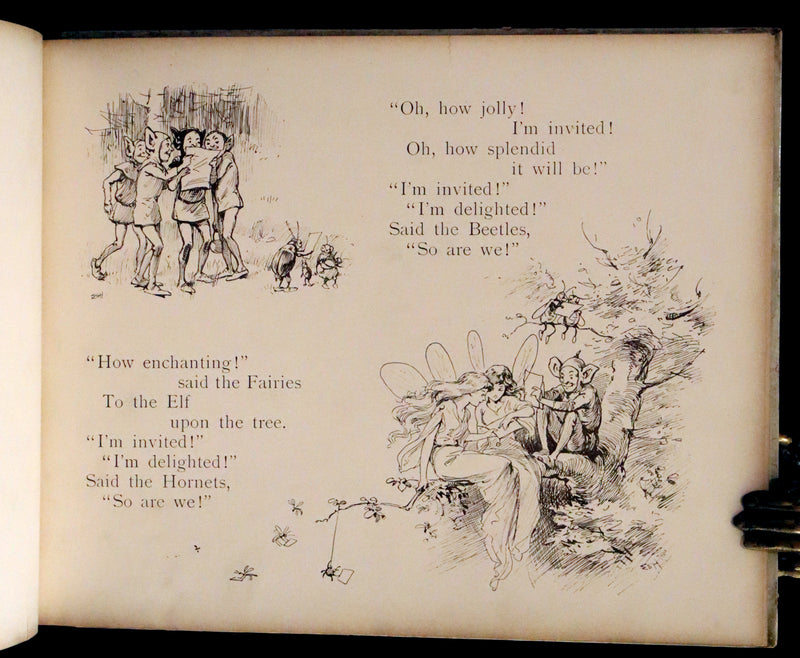 “Oh, how jolly!
I'm invited!
Oh, how splendid
it will be!”
“I'm invited!”
“I'm delighted!”
Said the Beetles,
“So are we!”
“How enchanting!”
said the Fairies
To the Elf
upon the tree.
“I'm invited!”
“I'm delighted!”
Said the Hornets,
“So are we!”